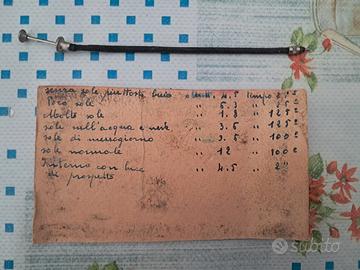 senza sole piuttosto buio " 4.5 tempo 2"
Poco sole " 6.3 " 25"
Molto sole " 1.8 " 125"
sole nell'acqua e neve " 3.5 " 125"
sole di mezzogiorno " 3.5 " 100"
sole normale " 12 " 100"
Interno con luce " 4.5 " 2"
di prospetto
subito